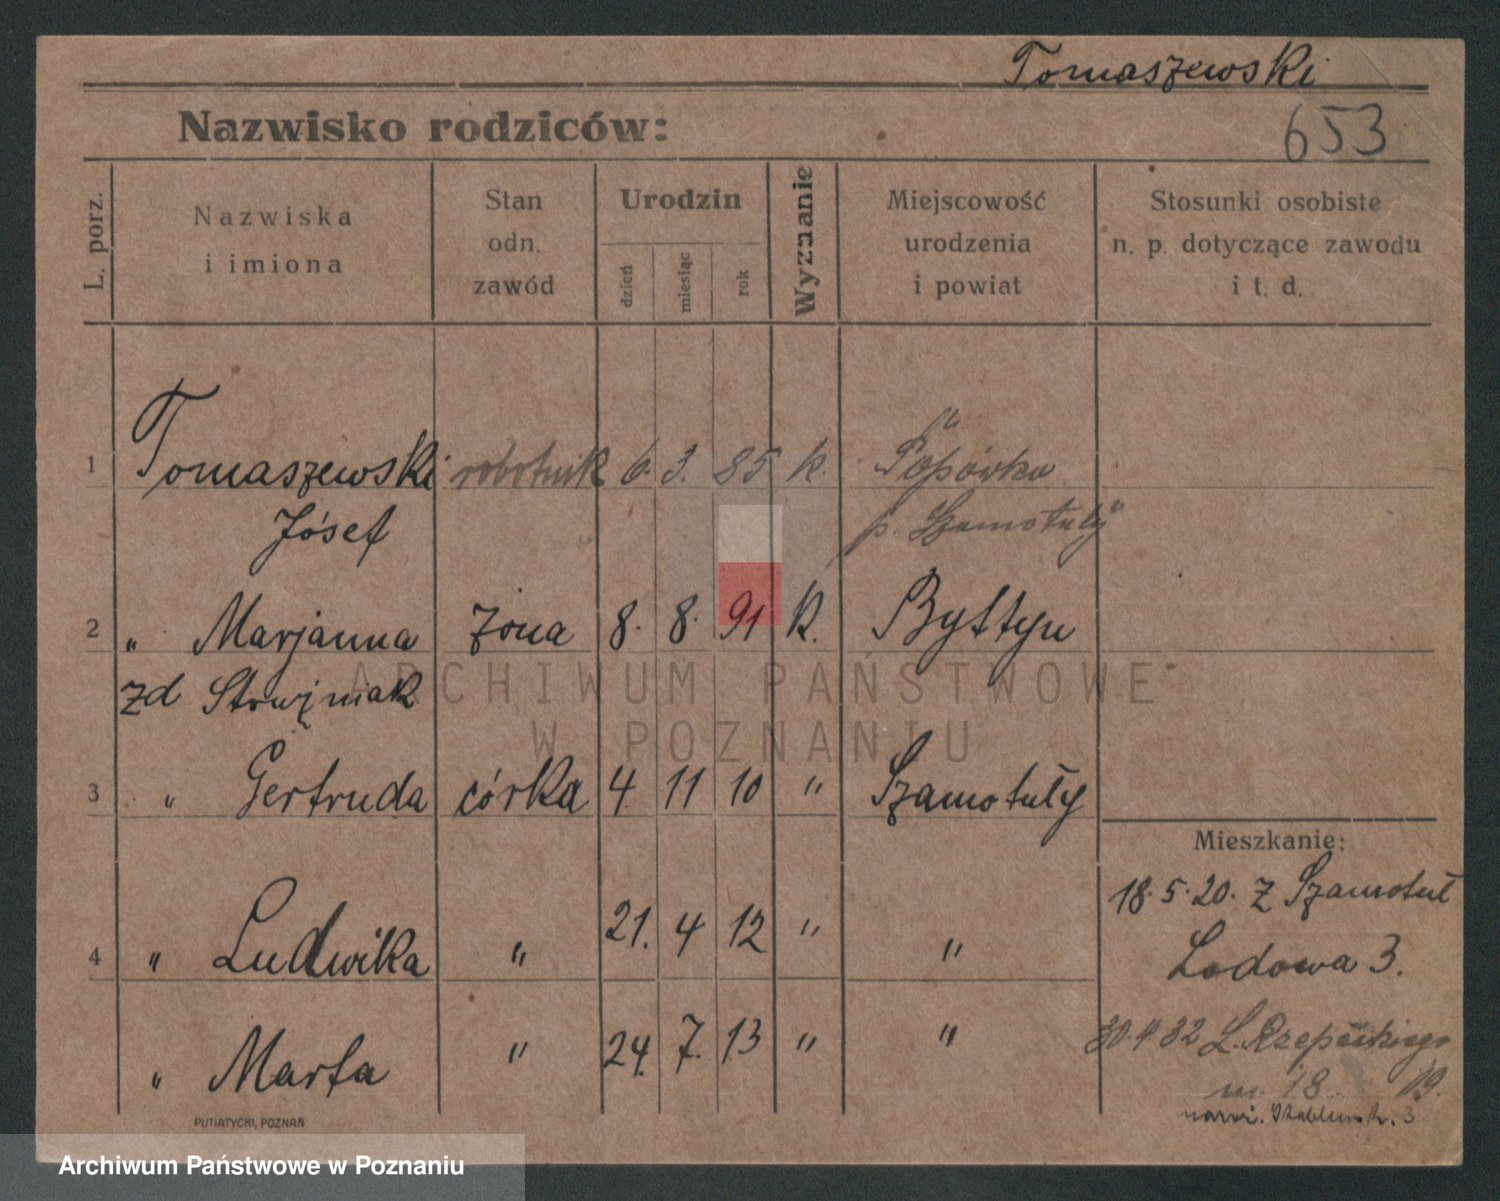 Tomaszewski
Nazwisko rodziców:
653
L. porz.
Nazwiska
i imiona
Stan
odn.
zawód
Urodzin
dzień
miesiąc
rok
Wyznanie
Miejscowość
urodzenia
i powiat
Stosunki osobiste
n. p. dotyczące zawodu
i t. d.
1 Tomaszewski robotnik 6. 3. 85 k. "Popówko
Józef p. Szamotuły"
2 " Marjanna żona 8. 8. 91 k. Byttyn
zd
3 " Gertruda córka 4 11 10 " Szamotuły
Mieszkanie:
18.5.20. z Szamotuł
4 " Ludwika " 21. 4 12 " "
Lodowa 3.
" Marta " 24. 7. 13 " "
30.4 32 L. Rzepeckiego
m. 18 19.
3
PUTIATYCKI, POZNAŃ
ARCHIWUM PAŃSTWOWE
W POZNANIU
Archiwum Państwowe w Poznaniu